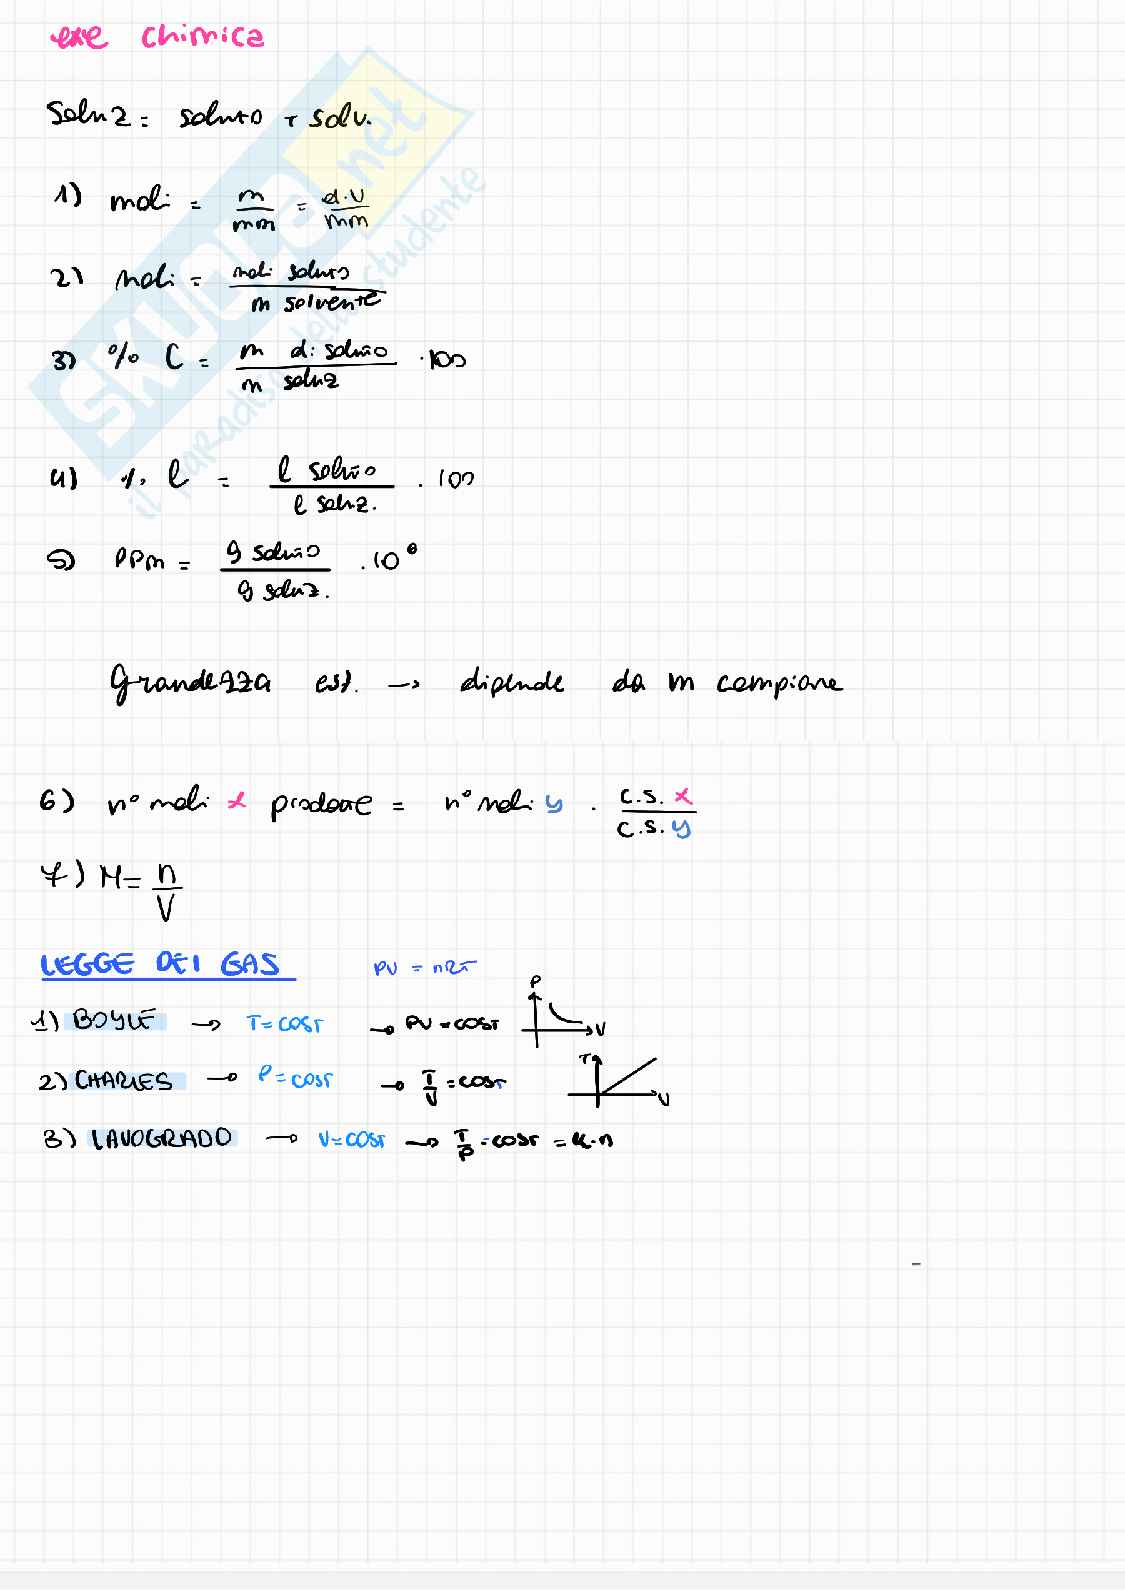 exe chimica
Soluz = soluto + solv.
1) moli = m/mm = d.V/mm
2) moli = moli soluto/m solvente
3) % C = m di soluto/m soluz · 100
4) % l = l soluto/l soluz. · 100
5) PPm = g soluto/g soluz. · 10⁶
Grandezza est. → dipende da m campione
6) n° moli x prodotte = n° moli y · c.s. x/c.s. y
7) M = n/V
LEGGE DEI GAS PV = nRT
1) BOYLE → T = COST → PV = COST
P
V
2) CHARLES → P = COST → T/V = COST
T
V
3) L'AVOGRADO → V = COST → T/P = COST = K·n
SKUOLA.net
il paradiso dello studente